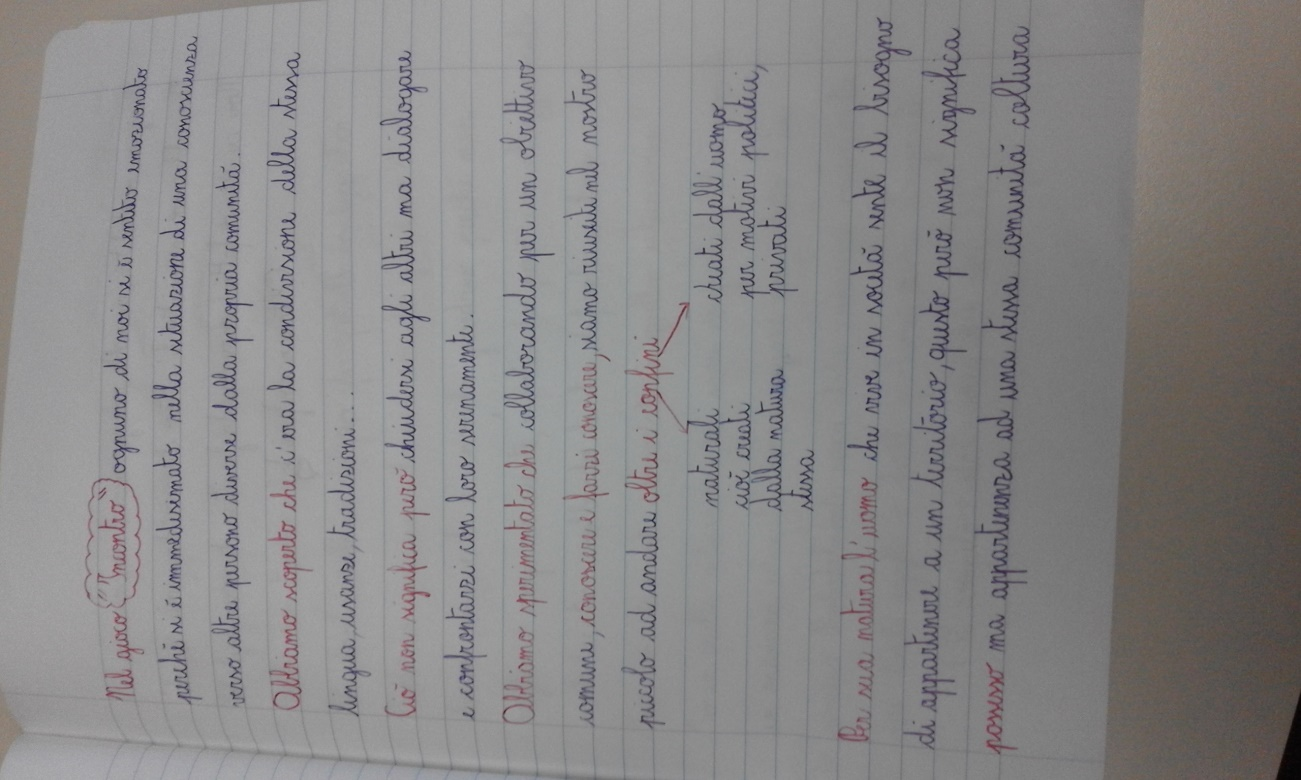 Nel gioco "Incontro" ognuno di noi si è sentito emozionato
perché si è immedesimato nella situazione di una conoscenza
verso altre persone diverse dalla propria comunità.
Abbiamo scoperto che c'era la condivisione della stessa
lingua, usanze, tradizioni...
Ciò non significa però chiudersi agli altri ma dialogare
e confrontarsi con loro serenamente.
Abbiamo sperimentato che collaborando per un obiettivo
comune, conoscere e farsi conoscere, siamo riusciti nel nostro
piccolo ad andare oltre i confini
naturali
cioè creati
dalla natura
stessa
creati dall'uomo
per motivi politici,
privati
Per sua natura l'uomo che vive in società sente il bisogno
di appartenere a un territorio, questo però non significa
possesso ma appartenenza ad una stessa comunità coltura